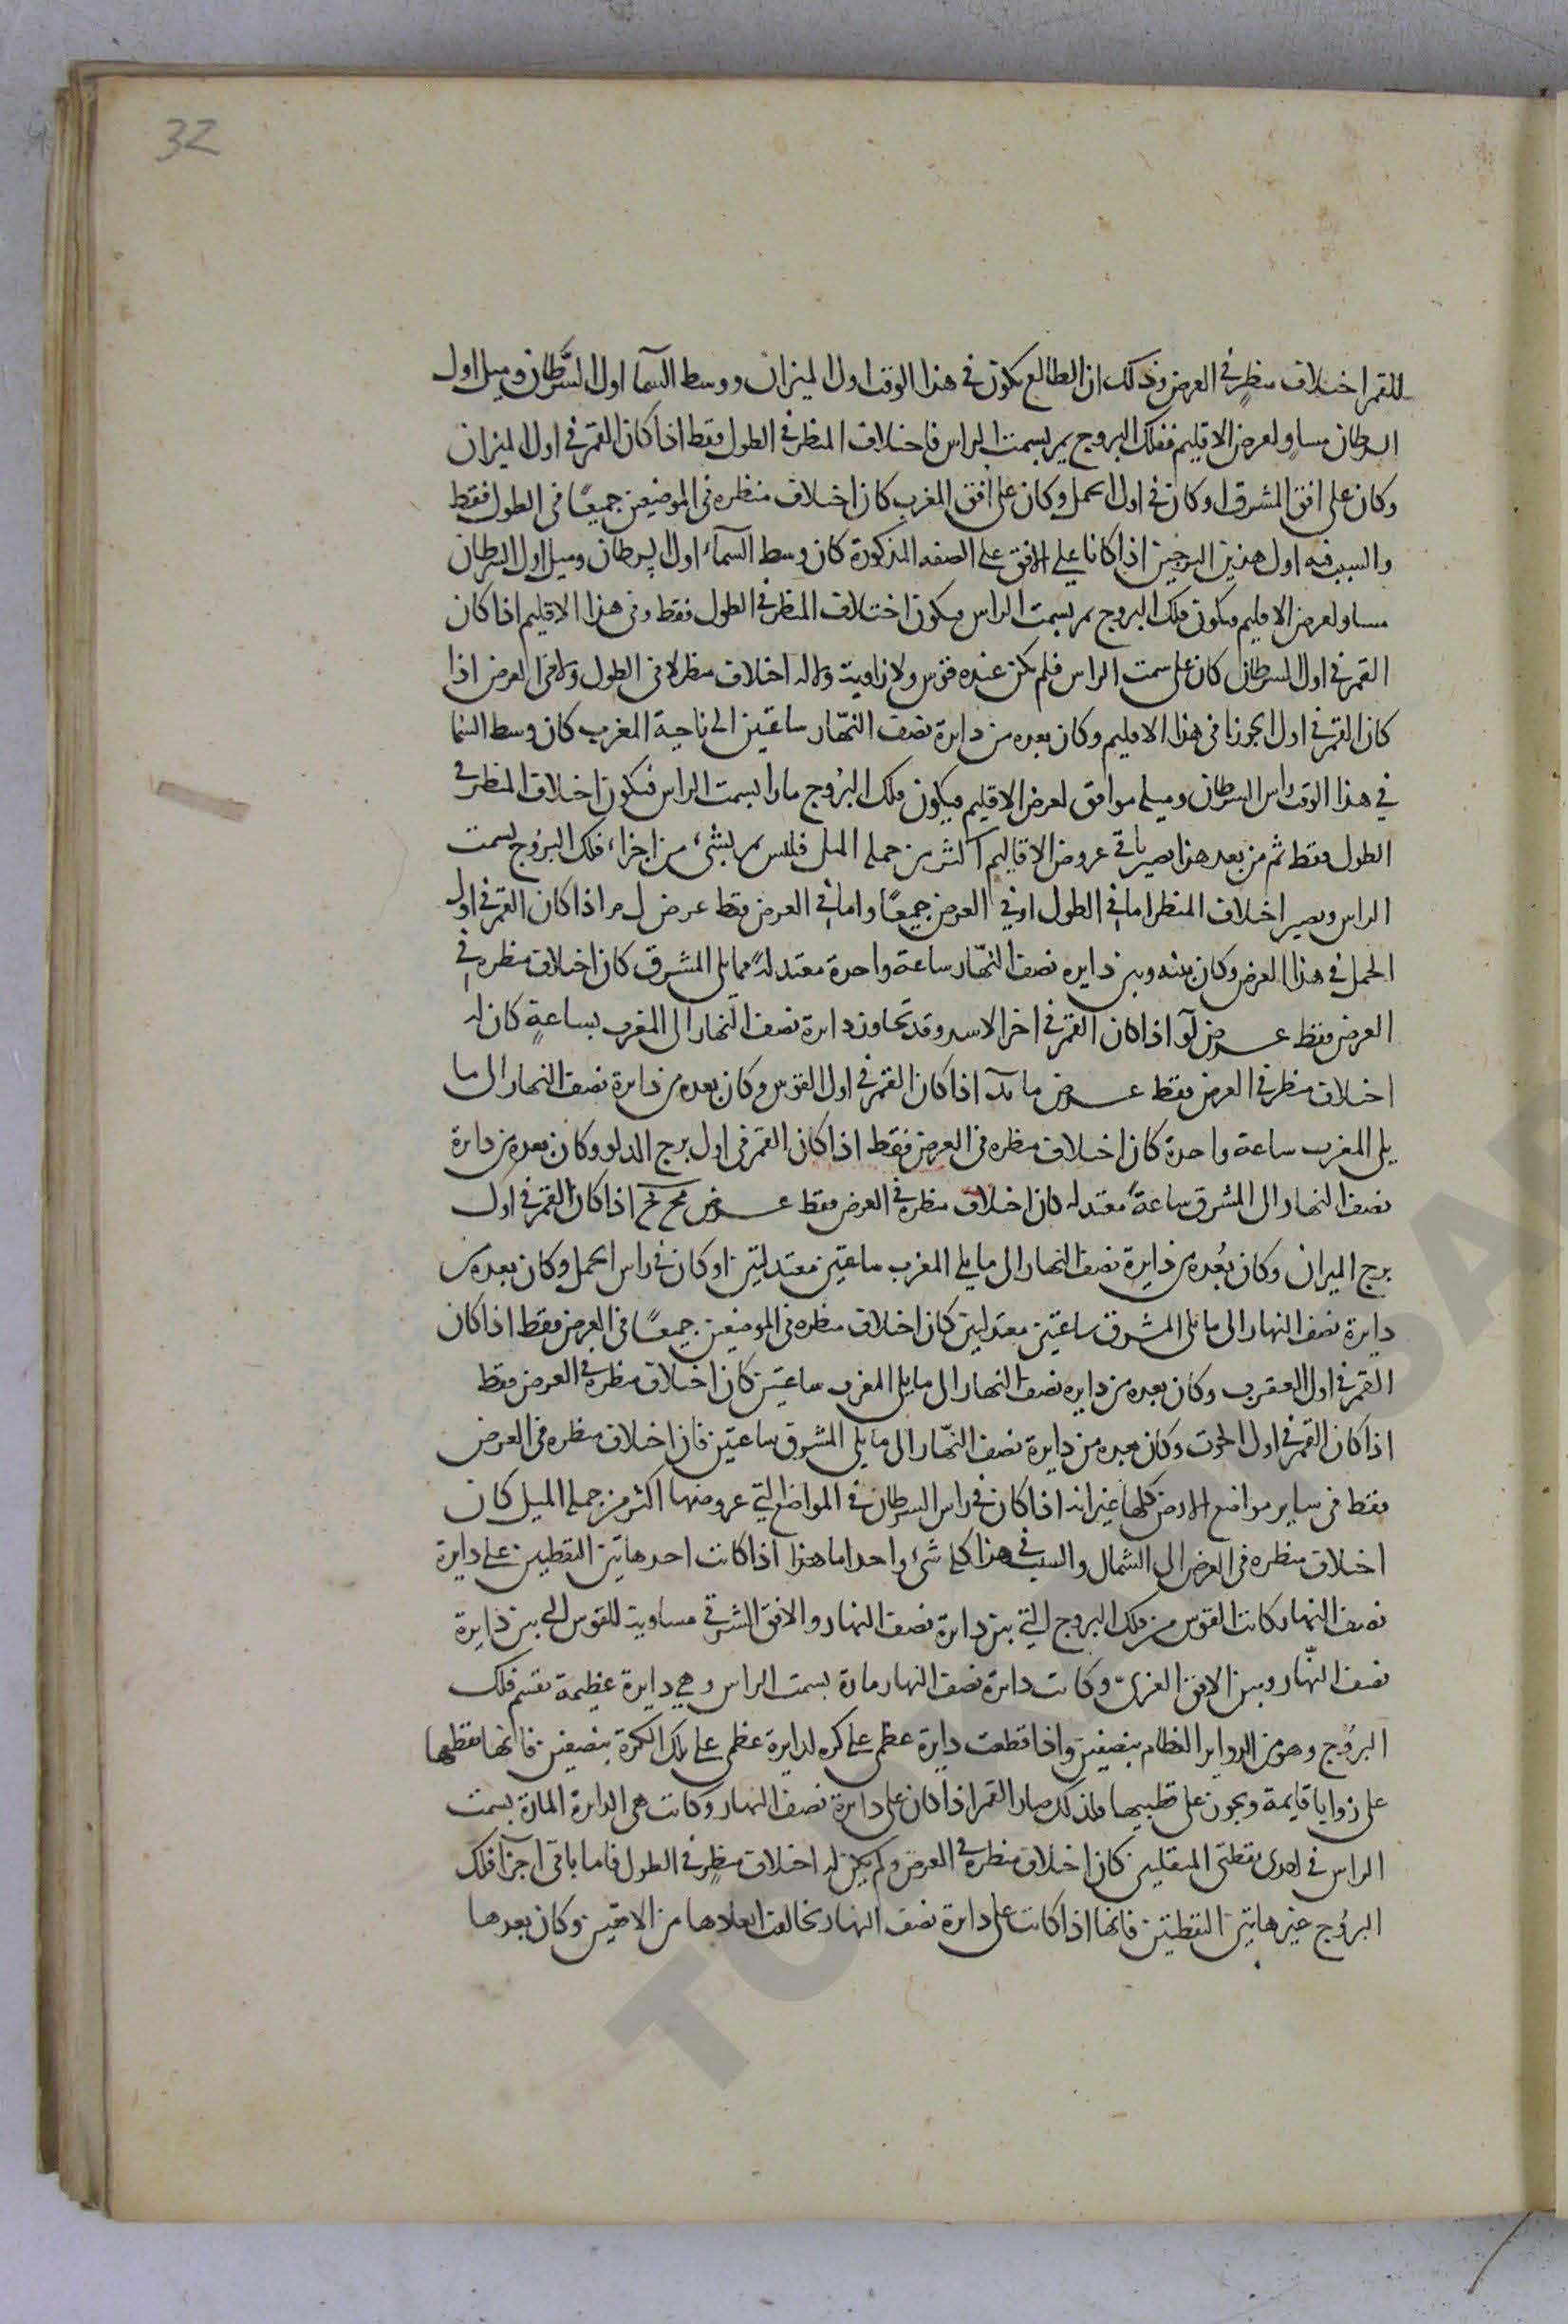 32
للقمر اختلاف منظرٍ في العرض وذلك ان الطالع يكون في هذا الوقت اول الميزان ووسط السمآ اول السَّرطان وميل اول
السرطان مساوٍ لعرض الاقليم ففلك البروج يمر بسمت الراس فاختلاف المنظر في الطول فقط اذا كان القمر في اول الميزان
وكان على افق المشرق او كان في اول الحمل وكان على افق المغرب كان اختلاف منظره في الموضعين جميعًا في الطول فقط
والسبب فيه اول هذين البرجين اذا كانا على الافق على الصفه المذكورة كان وسط السمآء اول السرطان وميل اول السرطان
مساو لعرض الاقليم فيكون فلك البروج يمر بسمت الراس فيكون اختلاف المنظر في الطول فقط وفي هذا الاقليم اذا كان
القمر في اول السرطان كان على سمت الراس فلم يكن عنده قوس ولا زاوية ولا له اختلاف منظر لا في الطول ولا في العرض اذا
كان القمر في اول الجوزا في هذا الاقليم وكان بعده من دايرة نصف النّهار ساعتين الى ناحية المغرب كان وسط السّما
في هذا الوقت راس السرطان وميله موافق لعرض الاقليم فيكون فلك البرُوج مارا بسمت الراس فيكون اختلاف المنظر في
الطول فقط ثم من بعد هذا يصير باقي عروض الاقاليم اكثر من جملة الميل فليس يمر بشئ من اجزاء فلك البرُوج بسمت
الراس ويصير اختلاف المنظر اما في الطول او في العرض جميعًا واما في العرض فقط عرض ل م اذا كان القمر في اول
الحمل في هذا العرض وكان بينه وبين دايره نصف النّهار ساعة واحدة معتدلةً مما يلي المشرق كان اختلاف منظره في
العرض فقط عرض لو اذا كان القمر في اخر الاسد وقد تجاوز دايرة نصف النهار الى المغرب بساعةٍ كان له
اختلاف منظر في العرض فقط عرض ما اذا كان القمر في اول القوس وكان بعده من دايرة نصف النهار الى ما
يلي المغرب ساعة واحدة كان اختلاف منظره في العرض فقط اذا كان القمر في اول برج الدلو وكان بعده من دايرة
نصف النهار الى المشرق ساعةً معتدله كان اختلاف منظره في العرض فقط عرض مح اذا كان القمر في اول
برج الميزان وكان بُعده من دايرة نصف النهار الى ما يلي المغرب ساعتين معتدلتين او كان في راس الحمل وكان بعده من
دايرة نصف النهار الى ما يلي المشرق ساعتين معتدلتين كان اختلاف منظره في الموضعين جميعًا في العرض فقط اذا كان
القمر في اول العقرب وكان بعده من دايره نصف النهار الى ما يلي المغرب ساعتين كان اختلاف منظره في العرض فقط
اذا كان القمر في اول الحوت وكان بعده من دايرة نصف النّهار الى ما يلي المشرق ساعتين فان اختلاف منظره في العرض
فقط في ساير مواضع الارض كلها غير انه اذا كان في راس السرطان في المواضع التي عروضها اكثر من جملة الميل كان
اختلاف منظره في العرض الى الشمال والسبب في هذا كله شئ واحد اما هذا اذا كانت احد هاتين النقطتين على دايرة
نصف النهار كانت القوس من فلك البروج التي بين دايرة نصف النهار والافق الشرقي مساوية للقوس التي بين دايرة
نصف النّهار وبين الافق الغربيّ وكانت دايرة نصف النهار مارة بسمت الراس وهي دايرة عظيمة تقسم فلك
البرُوج وهو من الدواير العظام بنصفين واذا قطعت دايرة عظمى على كره لدايرة عظمى على تلك الكرة بنصفين فانها تقطعها
على زوايا قايمة ويجوز على قطبيها فلذلك صار القمر اذا كان على دايرة نصف النهار وكانت هي الدايرة المارة بسمت
الراس في احدى نقطتي المنقلبين كان اختلاف منظره في العرض ولم يكن له اختلاف منظرٍ في الطول فاما باقي اجزآ فلك
البرُوج غير هاتين النقطتين فانها اذا كانت على دايرة نصف النهار تخالفت ابعادها من الافقين وكان بعدها